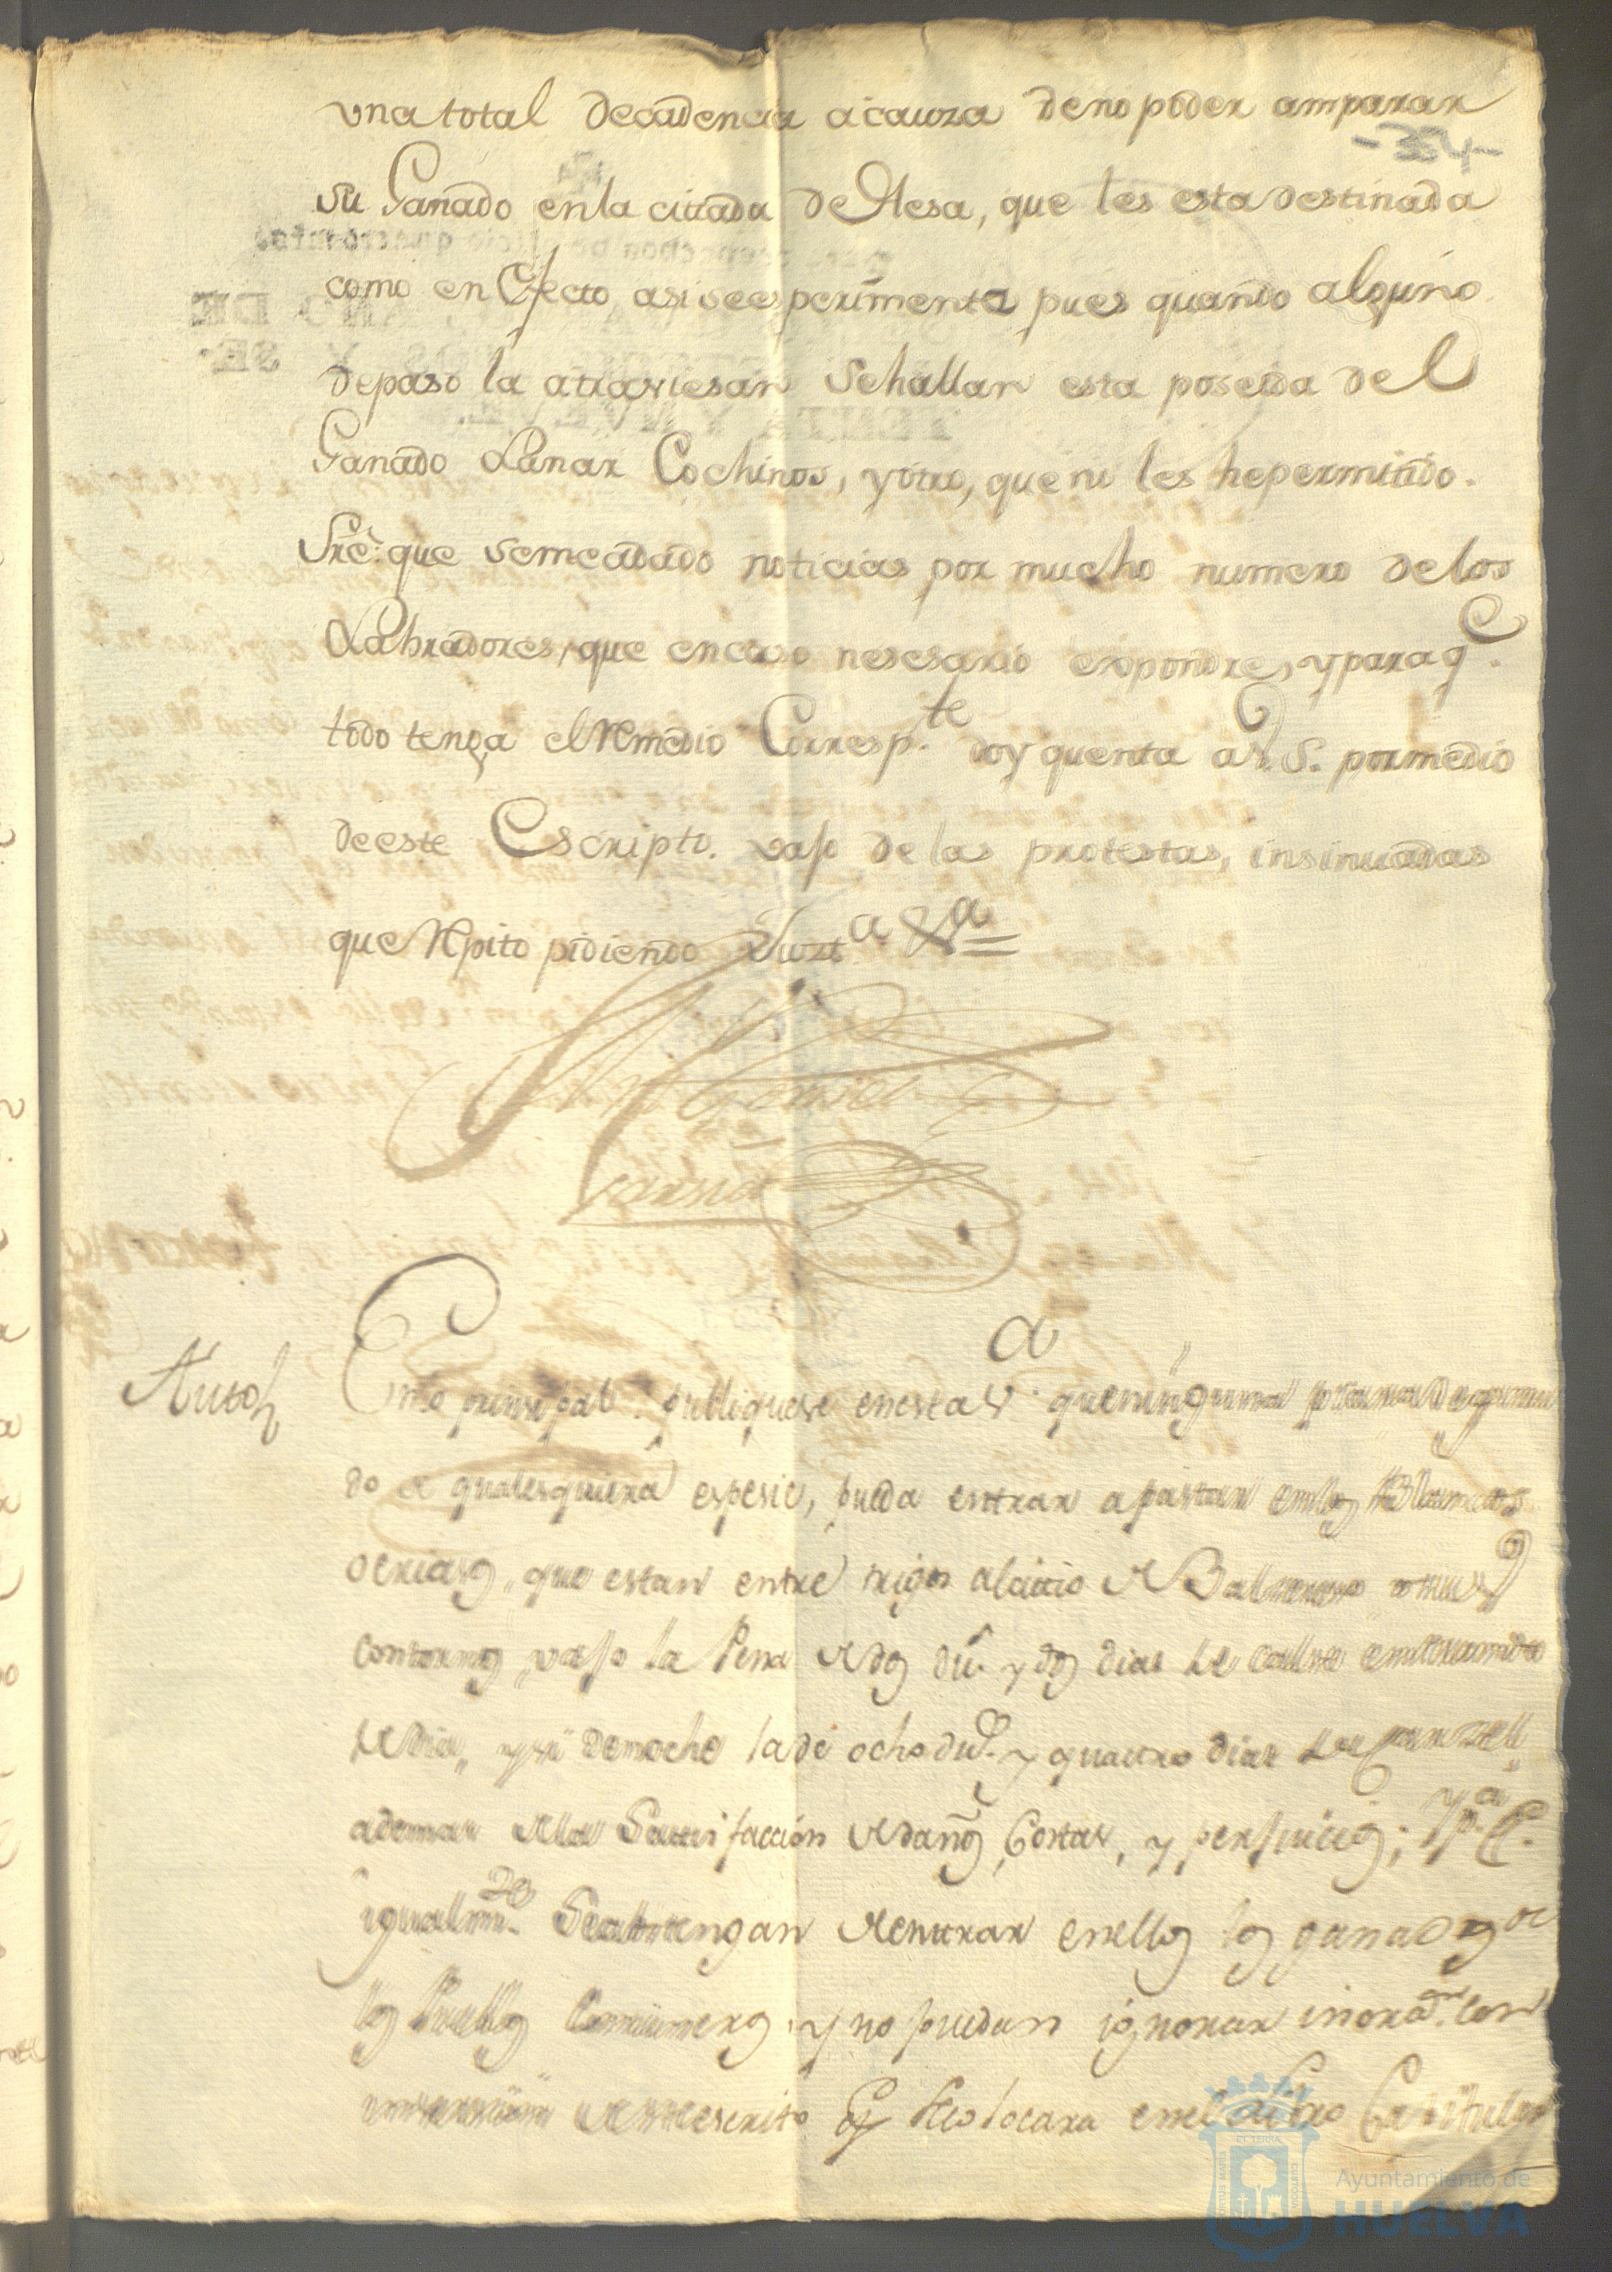 vna total decadencia a cauza de no poder amparar
-354-
su Ganado en la citada deHesa, que les esta destinada
como en Efecto asi se esperimenta pues quando alguno
de paso la atraviesan se hallan esta poseida del
Ganado Lanar Cochinos, y otro, que ni les he permitido.
Sre. que se me a dado noticias por mucho numero de los
Labradores, que en caso nesesario expondre, y para q.e
todo tenga el Remedio Corresp.te doy quenta a V. S. por medio
de este Escripto. vajo de las protestas, insinuadas
que Repito pidiendo Juzt.a &a
Auto
En lo prinsipal: publiquese en esta V.a que ninguna
do de qualesquiera espesie, pueda entrar a pastar en los
que estan entre trigos al citio de
contornos, vajo la Pena de dos du.s y dos dias de
de dia, y si de noche la de ocho du.s y quatro dias de Carsell
ademas de la Satisfacción de daños, Costas, y perjuicios; y p.a q.e
igualm.te Se abstengan de entrar en ellos los ganados de
los Pueblos Comuneros, y no puedan ignorar con
de este escrito se colocara en el Libro Capitular
Ayuntamiento de
HUELVA